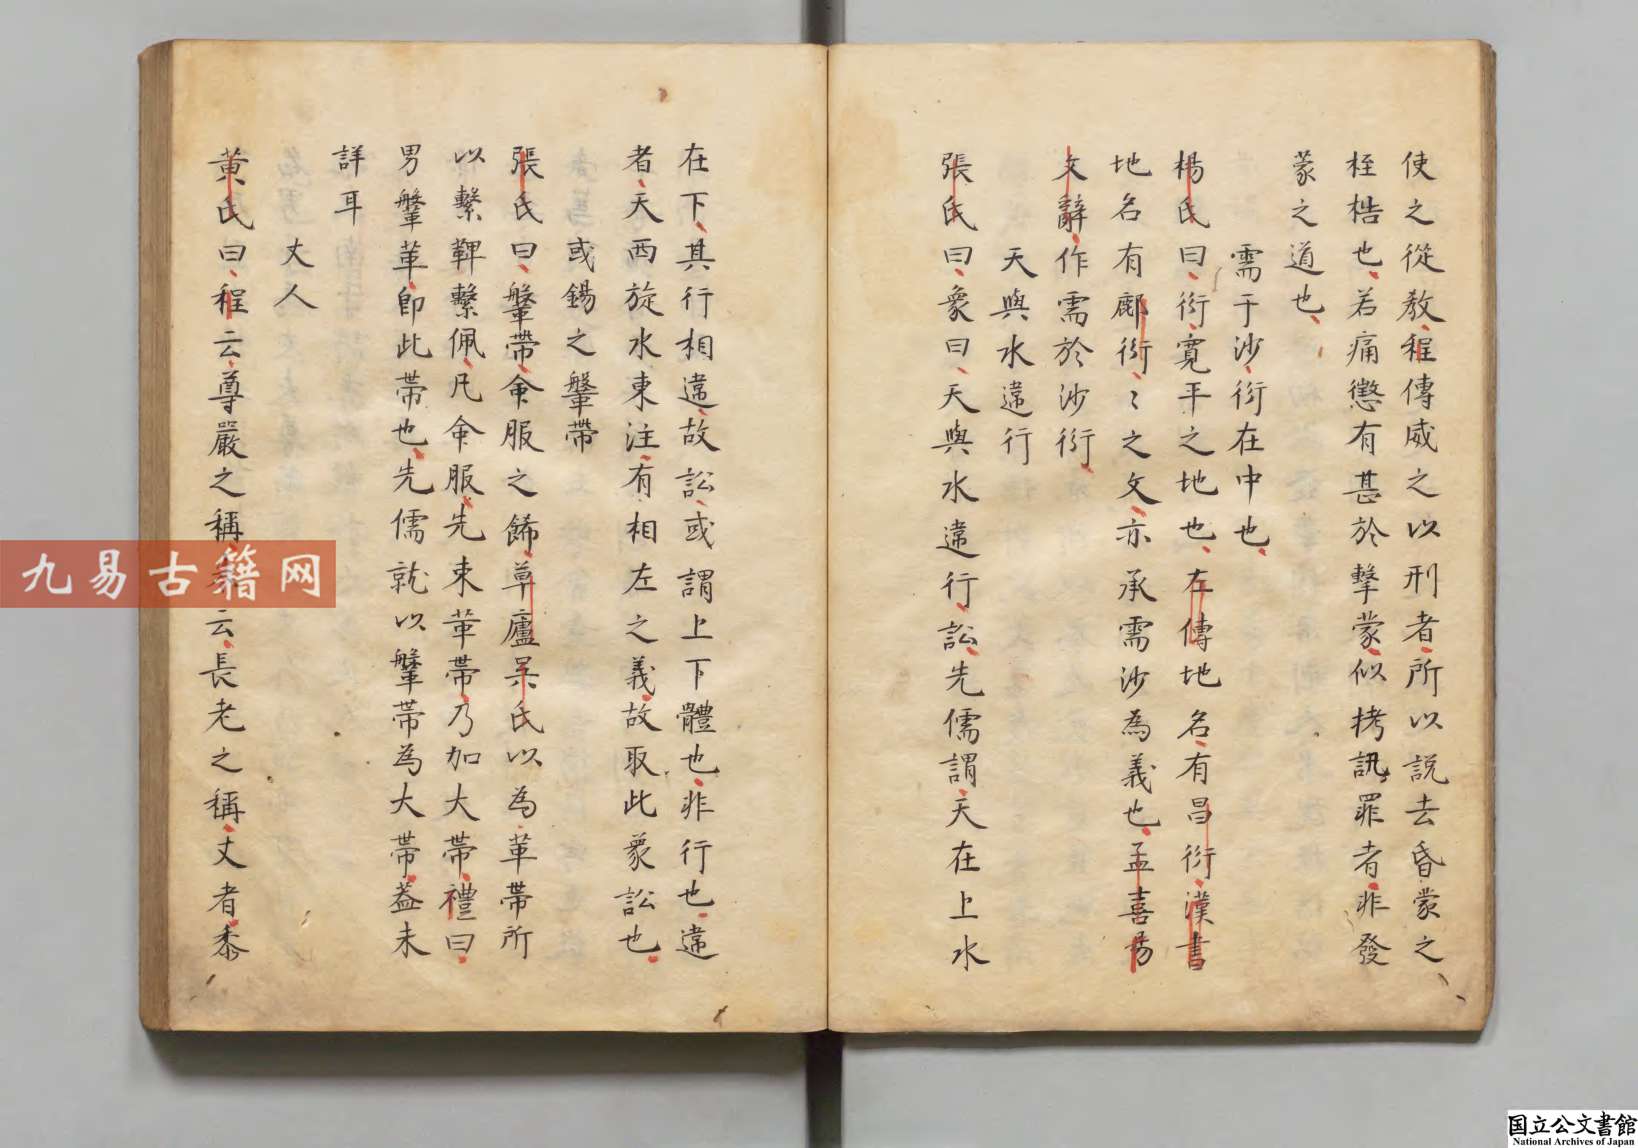 使之從教程傳威之以刑者所以説去昏蒙之
桎梏也若痛懲有甚於擊蒙似拷訊罪者非發
蒙之道也
需于沙衍在中也
楊氏曰衍寛平之地也左傳地名有昌衍漢書
地名有鄜衍〻之文亦承需沙為義也孟喜易
文辭作需於沙衍
天與水違行
張氏曰象曰天與水違行訟先儒謂天在上水
在下其行相違故訟或謂上下體也非行也違
者天西旋水東注有相左之義故取此象訟也
或錫之鞶帶
張氏曰鞶帶命服之飾草廬吴氏以為革帶所
以繫鞞繫佩凡命服先束革帶乃加大帶禮曰
男鞶革即此帶也先儒就以鞶帶為大帶蓋未
詳耳
丈人
黄氏曰程云尊嚴之稱云長老之稱丈者黍
九易古籍网
国立公文書館
National Archives of Japan